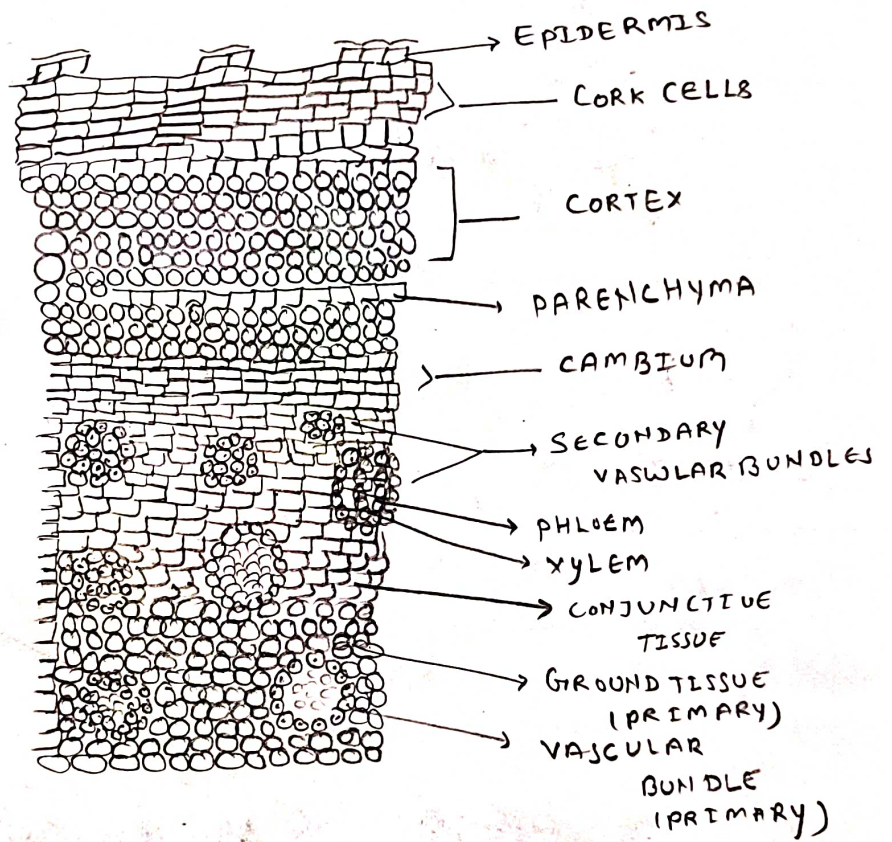 EPIDERMIS
CORK CELLS
CORTEX
PARENCHYMA
CAMBIUM
SECONDARY
VASCULAR BUNDLES
PHLOEM
XYLEM
CONJUNCTIVE
TISSUE
GROUND TISSUE
(PRIMARY)
VASCULAR
BUNDLE
(PRIMARY)